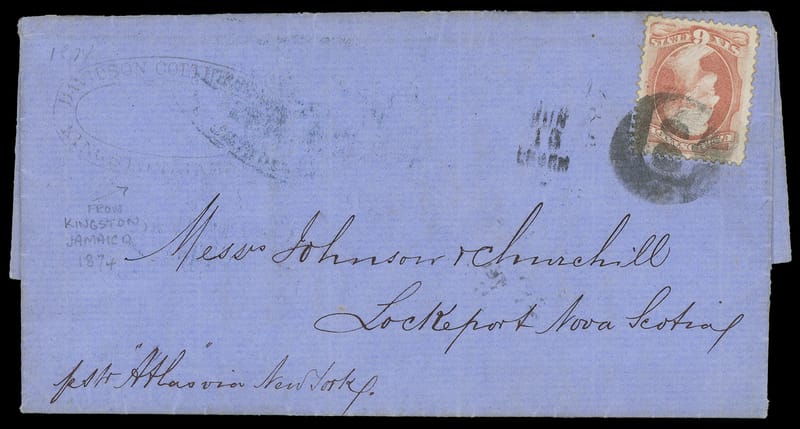 1874
DAVIDSON COLTHIRST
KINGSTON
JUN
13
FROM
KINGSTON,
JAMAICA
1874
Messrs Johnson & Churchill
Lockeport Nova Scotia
pstr "Atlas" via New York.